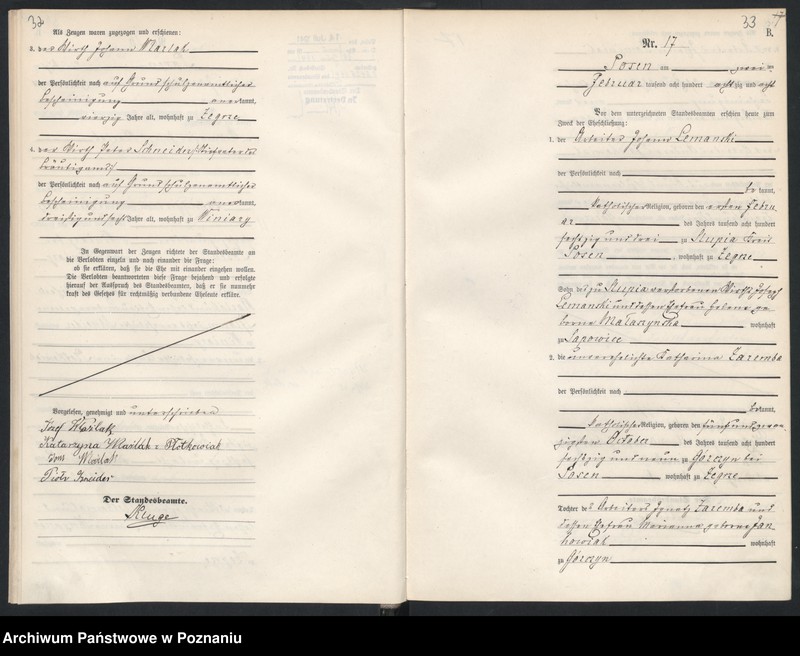 32
Als Zeugen waren zugezogen und erschienen:
3. der Wirth Johann Maślak
der Persönlichkeit nach auf Grund schulzenamtlicher
Bescheinigung anerkannt,
vierzig Jahre alt, wohnhaft zu Żegrze
4. der Wirth Peter Schneider
Bräutigams
der Persönlichkeit nach auf Grund schulzenamtlicher
Bescheinigung anerkannt,
dreißig und sechs Jahre alt, wohnhaft zu Winiary
In Gegenwart der Zeugen richtete der Standesbeamte an
die Verlobten einzeln und nach einander die Frage:
ob sie erklären, daß sie die Ehe mit einander eingehen wollen.
Die Verlobten beantworteten diese Frage bejahend und erfolgte
hierauf der Ausspruch des Standesbeamten, daß er sie nunmehr
kraft des Gesetzes für rechtmäßig verbundene Eheleute erkläre.
Vorgelesen, genehmigt und unterschrieben
Józef Maślak
Katarzyna Maślak z Płotkowiak
Jan Maślak
Piotr Sznider
Der Standesbeamte.
Kluge
33
B.
Nr. 17
Posen am zwei ten
Februar tausend acht hundert achtzig und acht
Vor dem unterzeichneten Standesbeamten erschien heute zum
Zweck der Eheschließung:
1. der Arbeiter Johann Lemanski
der Persönlichkeit nach
be kannt,
katholischer Religion, geboren den ersten Febru
ar des Jahres tausend acht hundert
sechszig und drei zu Slupia Kreis
Posen, wohnhaft zu Żegrze
Sohn des zu Slupia verstorbenen Wirths Joseph
Lemanski und dessen Ehefrau Helene ge
borne Małaczynska wohnhaft
zu Sapowice
2. die unverehelichte Katharina Zaremba
der Persönlichkeit nach
be kannt,
katholischer Religion, geboren den fünfundzwan
zigsten October des Jahres tausend acht hundert
sechszig und neun zu Górczyn bei
Posen wohnhaft zu Żegrze
Tochter des Arbeiters Ignatz Zaremba und
dessen Ehefrau Marianna geborne Jan
kowiak wohnhaft
zu Górczyn
Archiwum Państwowe w Poznaniu